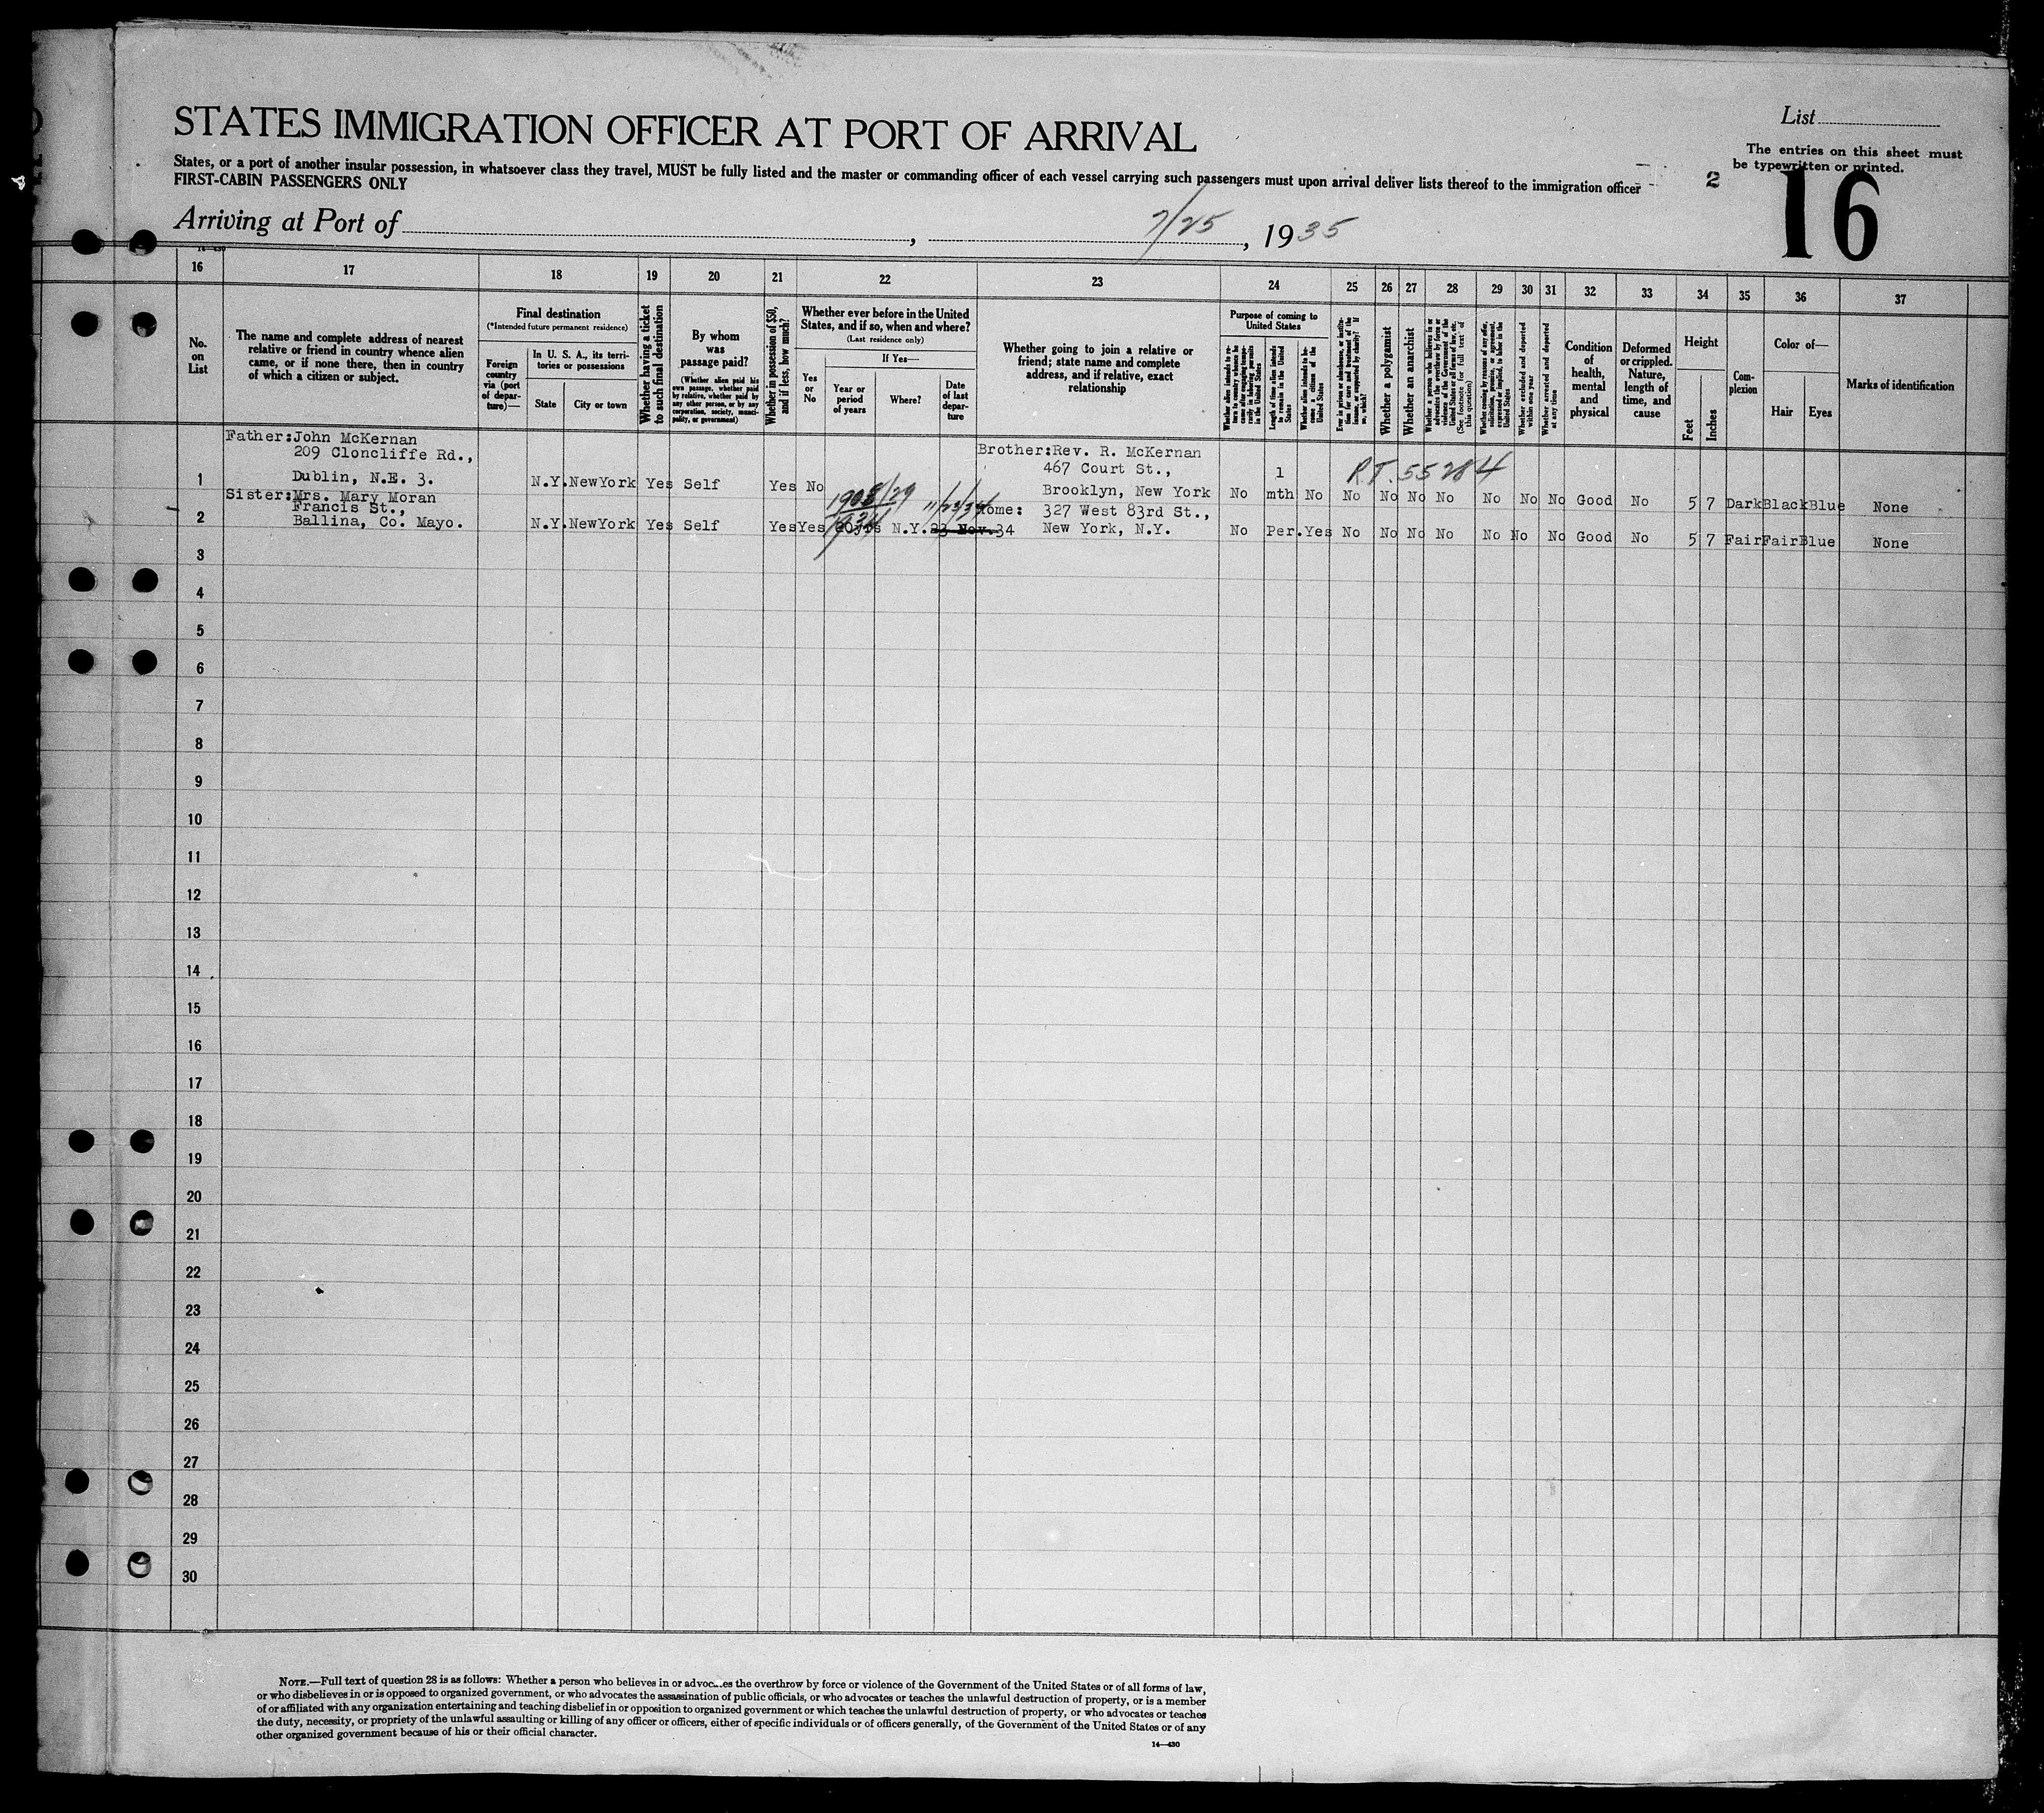 STATES IMMIGRATION OFFICER AT PORT OF ARRIVAL
List
The entries on this sheet must
be typewritten or printed.
States, or a port of another insular possession, in whatsoever class they travel, MUST be fully listed and the master or commanding officer of each vessel carrying such passengers must upon arrival deliver lists thereof to the immigration officer
FIRST-CABIN PASSENGERS ONLY
2
16
Arriving at Port of , 7/25, 1935
14—430
16 17 18 19 20 21 22 23 24 25 26 27 28 29 30 31 32 33 34 35 36 37
No.
on
List
The name and complete address of nearest
relative or friend in country whence alien
came, or if none there, then in country
of which a citizen or subject.
Final destination
(*Intended future permanent residence)
Foreign
country
via (port
of depar-
ture)—
In U. S. A., its terri-
tories or possessions
State
City or town
Whether having a ticket
to such final destination
By whom
was
passage paid?
(Whether alien paid his
own passage, whether paid
by relative, whether paid by
any other person, or by any
corporation, society, munici-
pality, or government)
Whether in possession of $50,
and if less, how much?
Whether ever before in the United
States, and if so, when and where?
(Last residence only)
Yes
or
No
If Yes—
Year or
period
of years
Where?
Date
of last
depar-
ture
Whether going to join a relative or
friend; state name and complete
address, and if relative, exact
relationship
Purpose of coming to
United States
Length of time alien intends
to remain in the United
States
Whether alien intends to be-
come a citizen of the
United States
Whether a polygamist
Whether an anarchist
Whether excluded and deported
within one year
Whether arrested and deported
at any time
Condition
of
health,
mental
and
physical
Deformed
or crippled.
Nature,
length of
time, and
cause
Height
Feet
Inches
Com-
plexion
Color of—
Hair
Eyes
Marks of identification
Father:John McKernan
209 Cloncliffe Rd.,
Brother:Rev. R. McKernan
467 Court St.,
P.T. 55284
1 Dublin, N.E. 3. N.Y. NewYork Yes Self Yes No Brooklyn, New York No 1 mth No No No No No No No No Good No 5 7 Dark Black Blue None
Sister:Mrs. Mary Moran
Francis St.,
1908/29
1934
11/23/34
Home: 327 West 83rd St.,
2 Ballina, Co. Mayo. N.Y. NewYork Yes Self Yes Yes N.Y. 23 Nov. 34 New York, N.Y. No Per. Yes No No No No No No No Good No 5 7 Fair Fair Blue None
3
4
5
6
7
8
9
10
11
12
13
14
15
16
17
18
19
20
21
22
23
24
25
26
27
28
29
30
NOTE.—Full text of question 28 is as follows: Whether a person who believes in or advoc...es the overthrow by force or violence of the Government of the United States or of all forms of law,
or who disbelieves in or is opposed to organized government, or who advocates the assassination of public officials, or who advocates or teaches the unlawful destruction of property, or is a member
of or affiliated with any organization entertaining and teaching disbelief in or opposition to organized government or which teaches the unlawful destruction of property, or who advocates or teaches
the duty, necessity, or propriety of the unlawful assaulting or killing of any officer or officers, either of specific individuals or of officers generally, of the Government of the United States or of any
other organized government because of his or their official character.
14—430